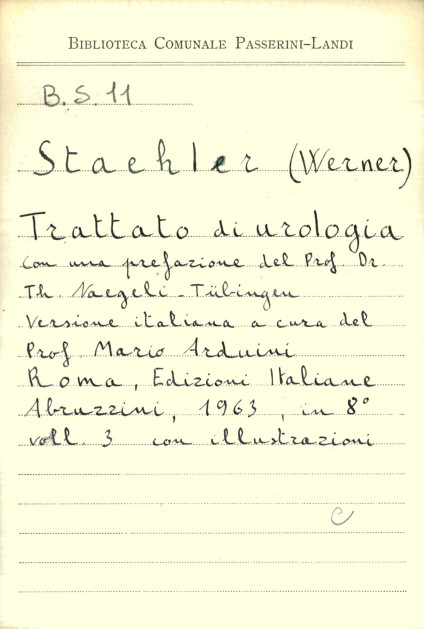 BIBLIOTECA COMUNALE PASSERINI-LANDI
B. S. 11
Staehler (Werner)
Trattato di urologia
con una prefazione del Prof. Dr.
Th. Naegeli - Tübingen
Versione italiana a cura del
Prof Mario Arduini
Roma, Edizioni Italiane
Abruzzini, 1963, in 8°
voll. 3 con illustrazioni
C